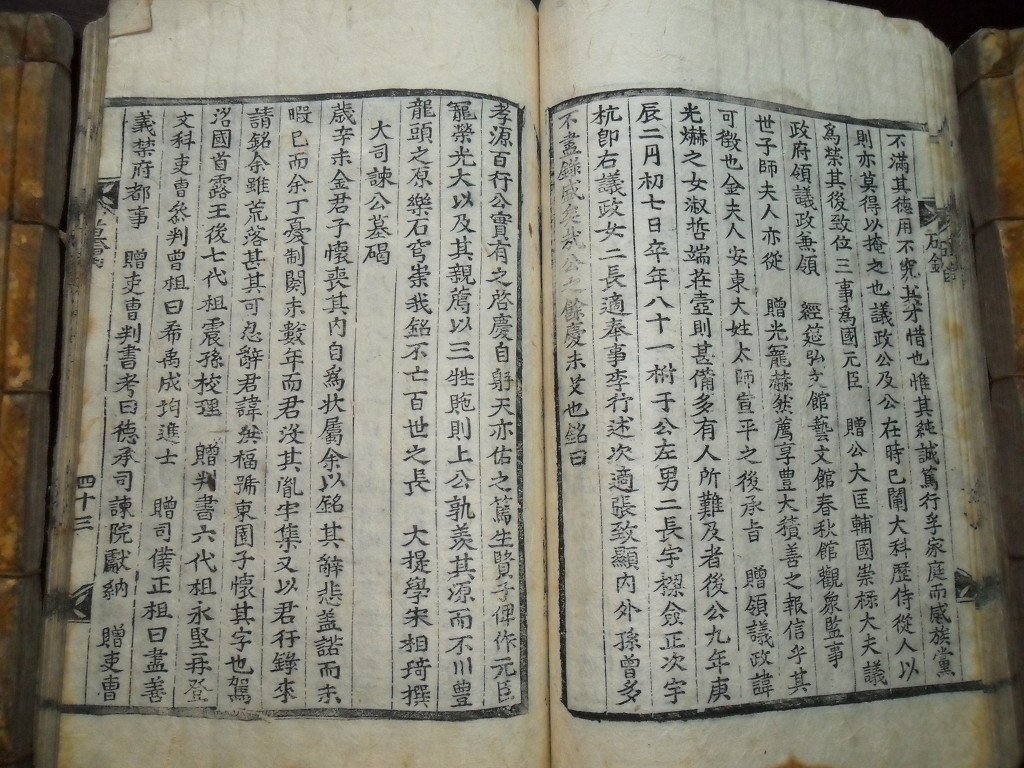 不滿其德用不究其才惜也惟其純誠篤行孚家庭而感族黨
則亦莫得以掩之也議政公及公在時已闡大科歷侍從人以
爲榮其後致位三事爲國元臣 贈公大匡輔國崇祿大夫議
政府領議政兼領 經筵弘文館藝文館春秋館觀象監事
世子師夫人亦從 贈光寵赫然薦享豊大積善之報信乎其
可徵也金夫人安東大姓太師宣平之後承旨 贈領議政諱
光爀之女淑哲端莊壼則甚備多有人所難及者後公九年庚
辰二月初七日卒年八十一祔于公左男二長宇樛僉正次宇
杭卽右議政女二長適奉事李行述次適張致顯內外孫曾多
不盡錄 公之餘慶未艾也銘曰
孝源百行公實有之啓慶自躬天亦佑之篤生賢子俾作元臣
寵榮光大以及其親薦以三牲貤則上公孰羨其源而不川豊
龍頭之原樂石穹崇我銘不亡百世之長 大提學宋相琦撰
大司諫公墓碣
歲辛未金君子懷喪其內自爲狀屬余以銘其辭悲盖諾而未
暇已而余丁憂制闋未數年而君沒其胤牢集又以君行錄來
請銘余雖荒落甚其可忍辭君諱 福號東園子懷其字也駕
洛國首露王後七代祖震孫校理 贈判書六代祖永堅再登
文科吏曹參判曾祖曰希禹成均進士 贈司僕正祖曰盡善
義禁府都事 贈吏曹判書考曰德承司諫院獻納 贈吏曹
四十三